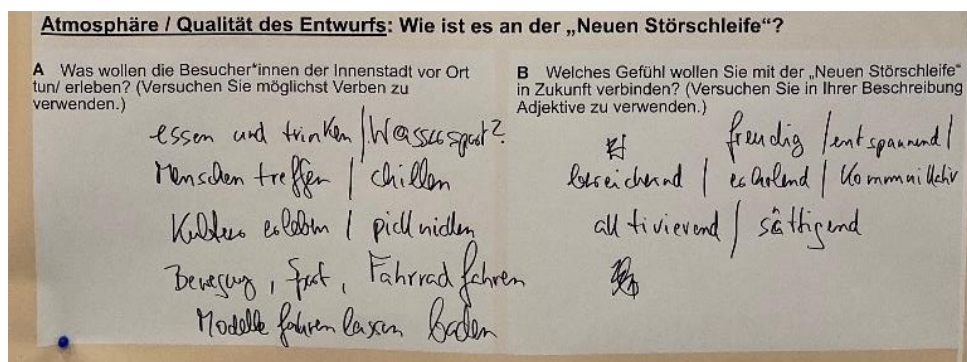 Atmosphäre / Qualität des Entwurfs: Wie ist es an der „Neuen Störschleife“?
A Was wollen die Besucher*innen der Innenstadt vor Ort
tun/ erleben? (Versuchen Sie möglichst Verben zu
verwenden.)
essen und trinken / Wassersport?
Menschen treffen / chillen
Kultur erleben / picknicken
Bewegung, Sport, Fahrrad fahren
Modelle fahren lassen baden
B Welches Gefühl wollen Sie mit der „Neuen Störschleife“
in Zukunft verbinden? (Versuchen Sie in Ihrer Beschreibung
Adjektive zu verwenden.)
freudig / entspannend /
bereichernd / erholend / kommunikativ
aktivierend / sättigend